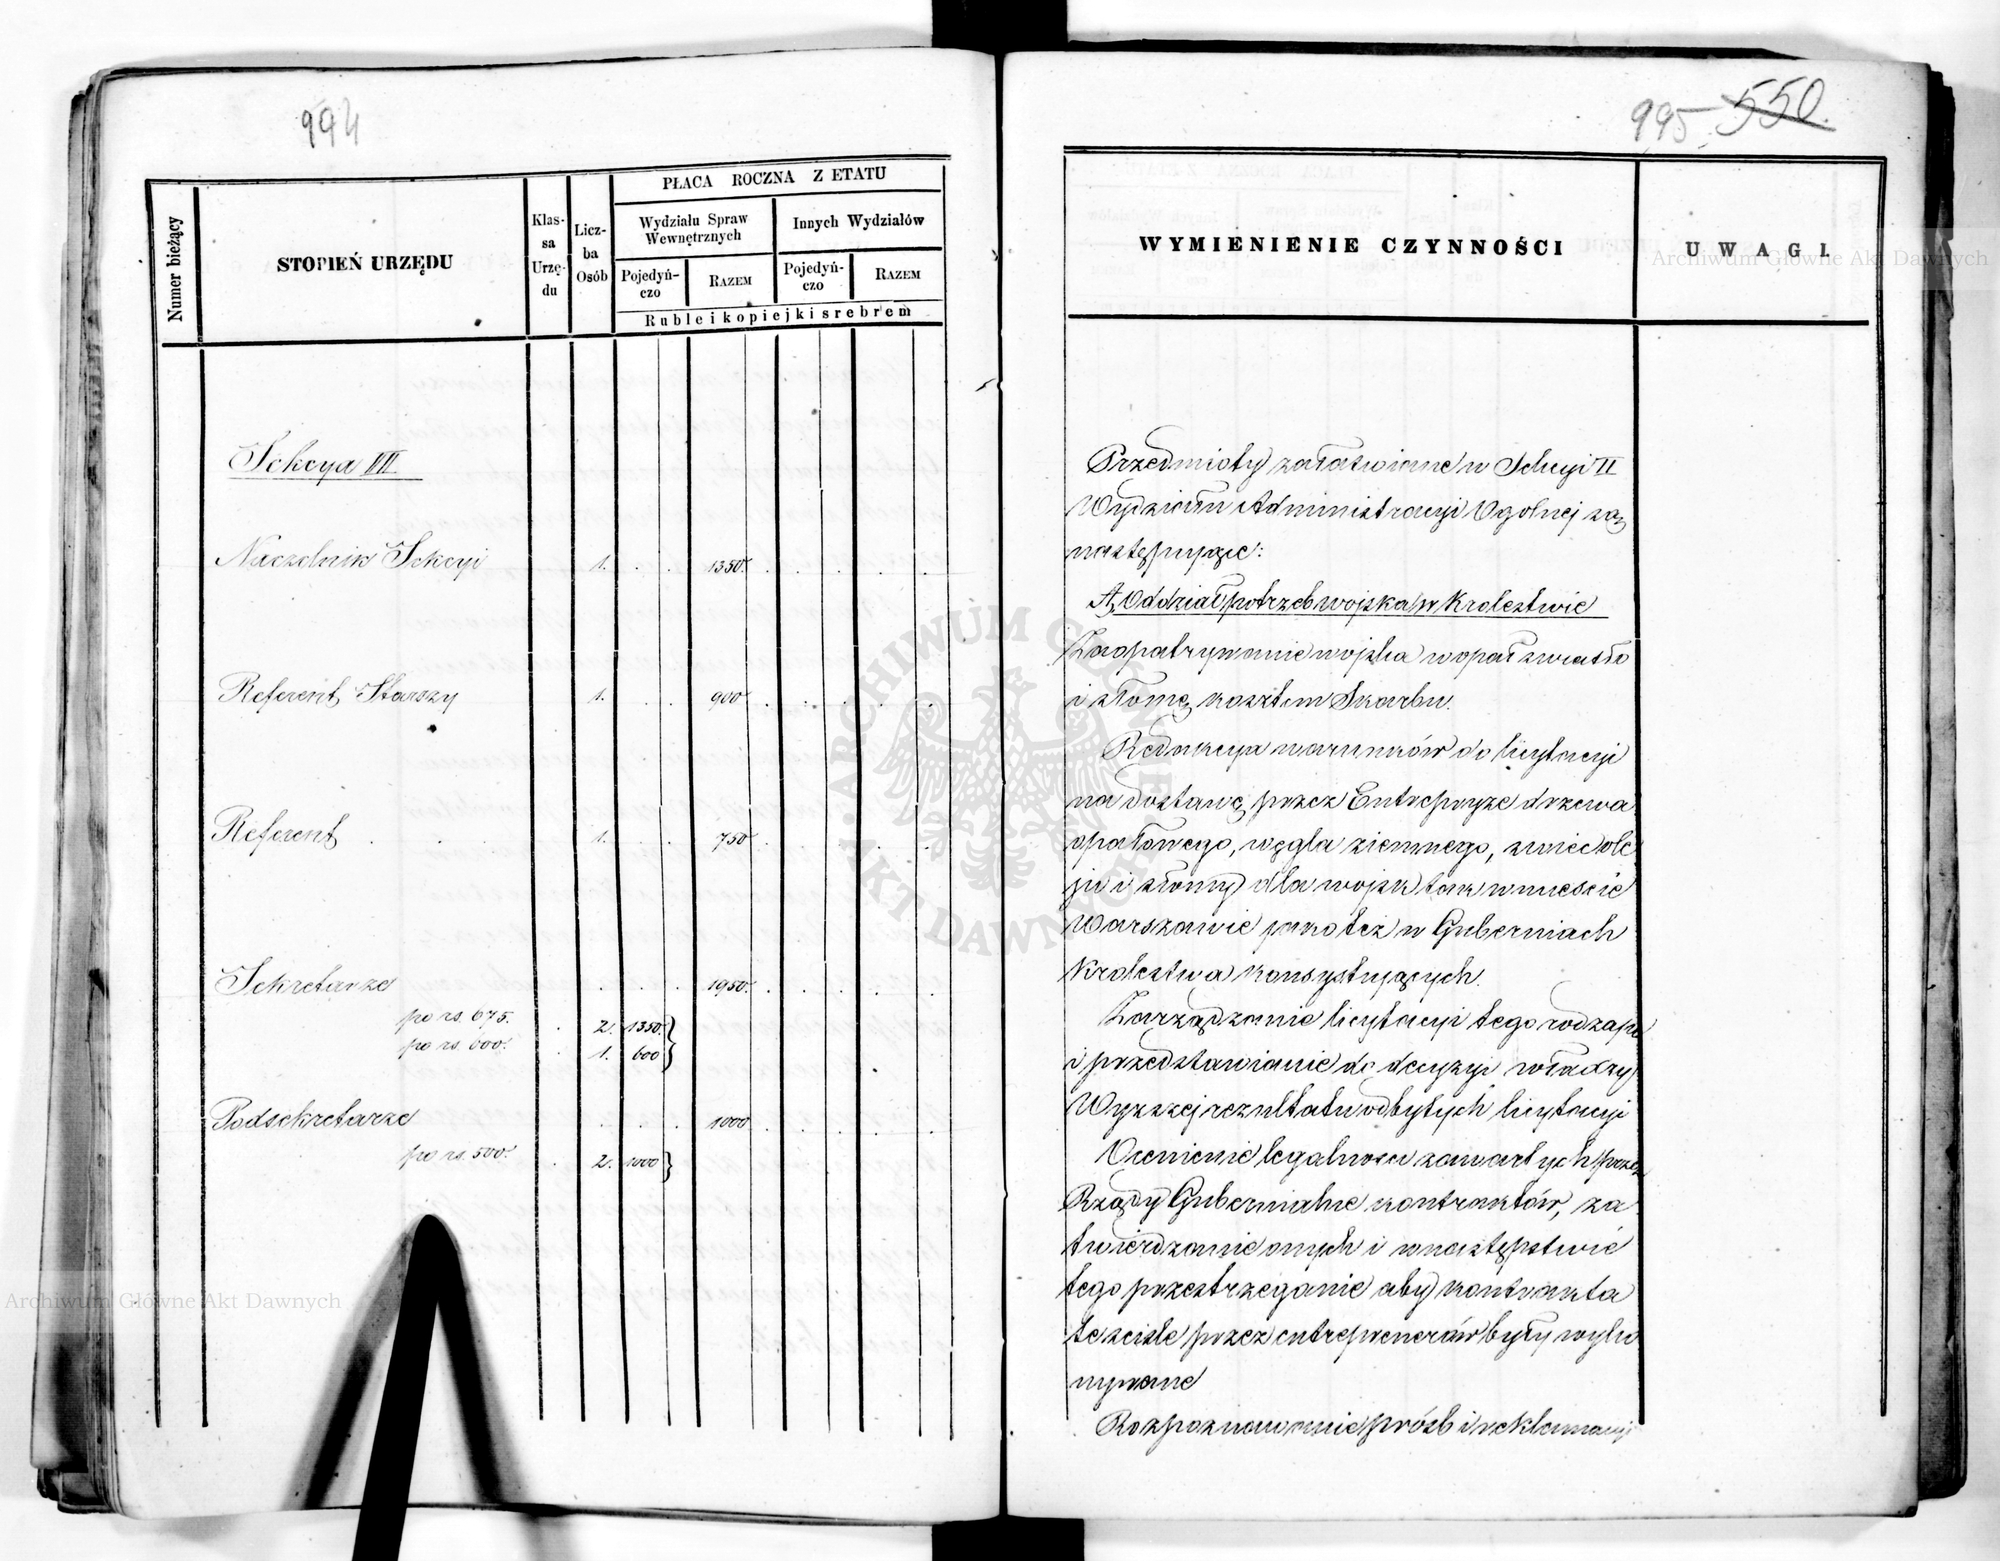 994
Numer bieżący
STOPIEŃ URZĘDU
Klas-
sa
Urzę-
du
Licz-
ba
Osób
PŁACA ROCZNA Z ETATU
Wydziału Spraw
Wewnętrznych
Innych Wydziałów
Pojedyń-
czo
RAZEM
Pojedyń-
czo
RAZEM
Ruble i kopiejki srebrem
Sekcya VII
Naczelnik Sekcyi 1. 1350.
Referent Starszy 1. 900
Referent 1. 750
Sekretarze 1950.
po rs. 675. 2. 1350.
po rs. 600. 1. 600
Podsekretarze 1000
po rs. 500. 2. 1000
995 550.
WYMIENIENIE CZYNNOŚCI
UWAGI.
Przedmioty załatwiane w Sekcyi II
Wydziału Administracyi Ogolnej są
następujące:
A, Oddział potrzeb wojska w Krolestwie
Zaopatrywanie wojska w opał światło
i słomę kosztem Skarbu.
Redakcya warunków do licytacyi
na dostawę przez Entrepryze drzewa
opałowego, węgla ziemnego, świec ole
ju i słomy dla wojsk tak w mieście
Warszawie jako też w Guberniach
Krolestwa konsystujących.
Zarządzanie licytacyi tego rodzaju
i przedstawianie do decyzyi władzy
Wyższej rezultatu odbytych licytacyi
Ocenienie legalności zawartych przez
Rządy Gubernialne kontraktów, za
twierdzanie onych i w następstwie
tego przestrzeganie aby kontrakta
te ściśle przez entreprenerów były wyko
nywane
Rozpoznawanie próśb i reklamacyi
ARCHIWUM GŁÓWNE AKT DAWNYCH
Archiwum Główne Akt Dawnych
Archiwum Główne Akt Dawnych